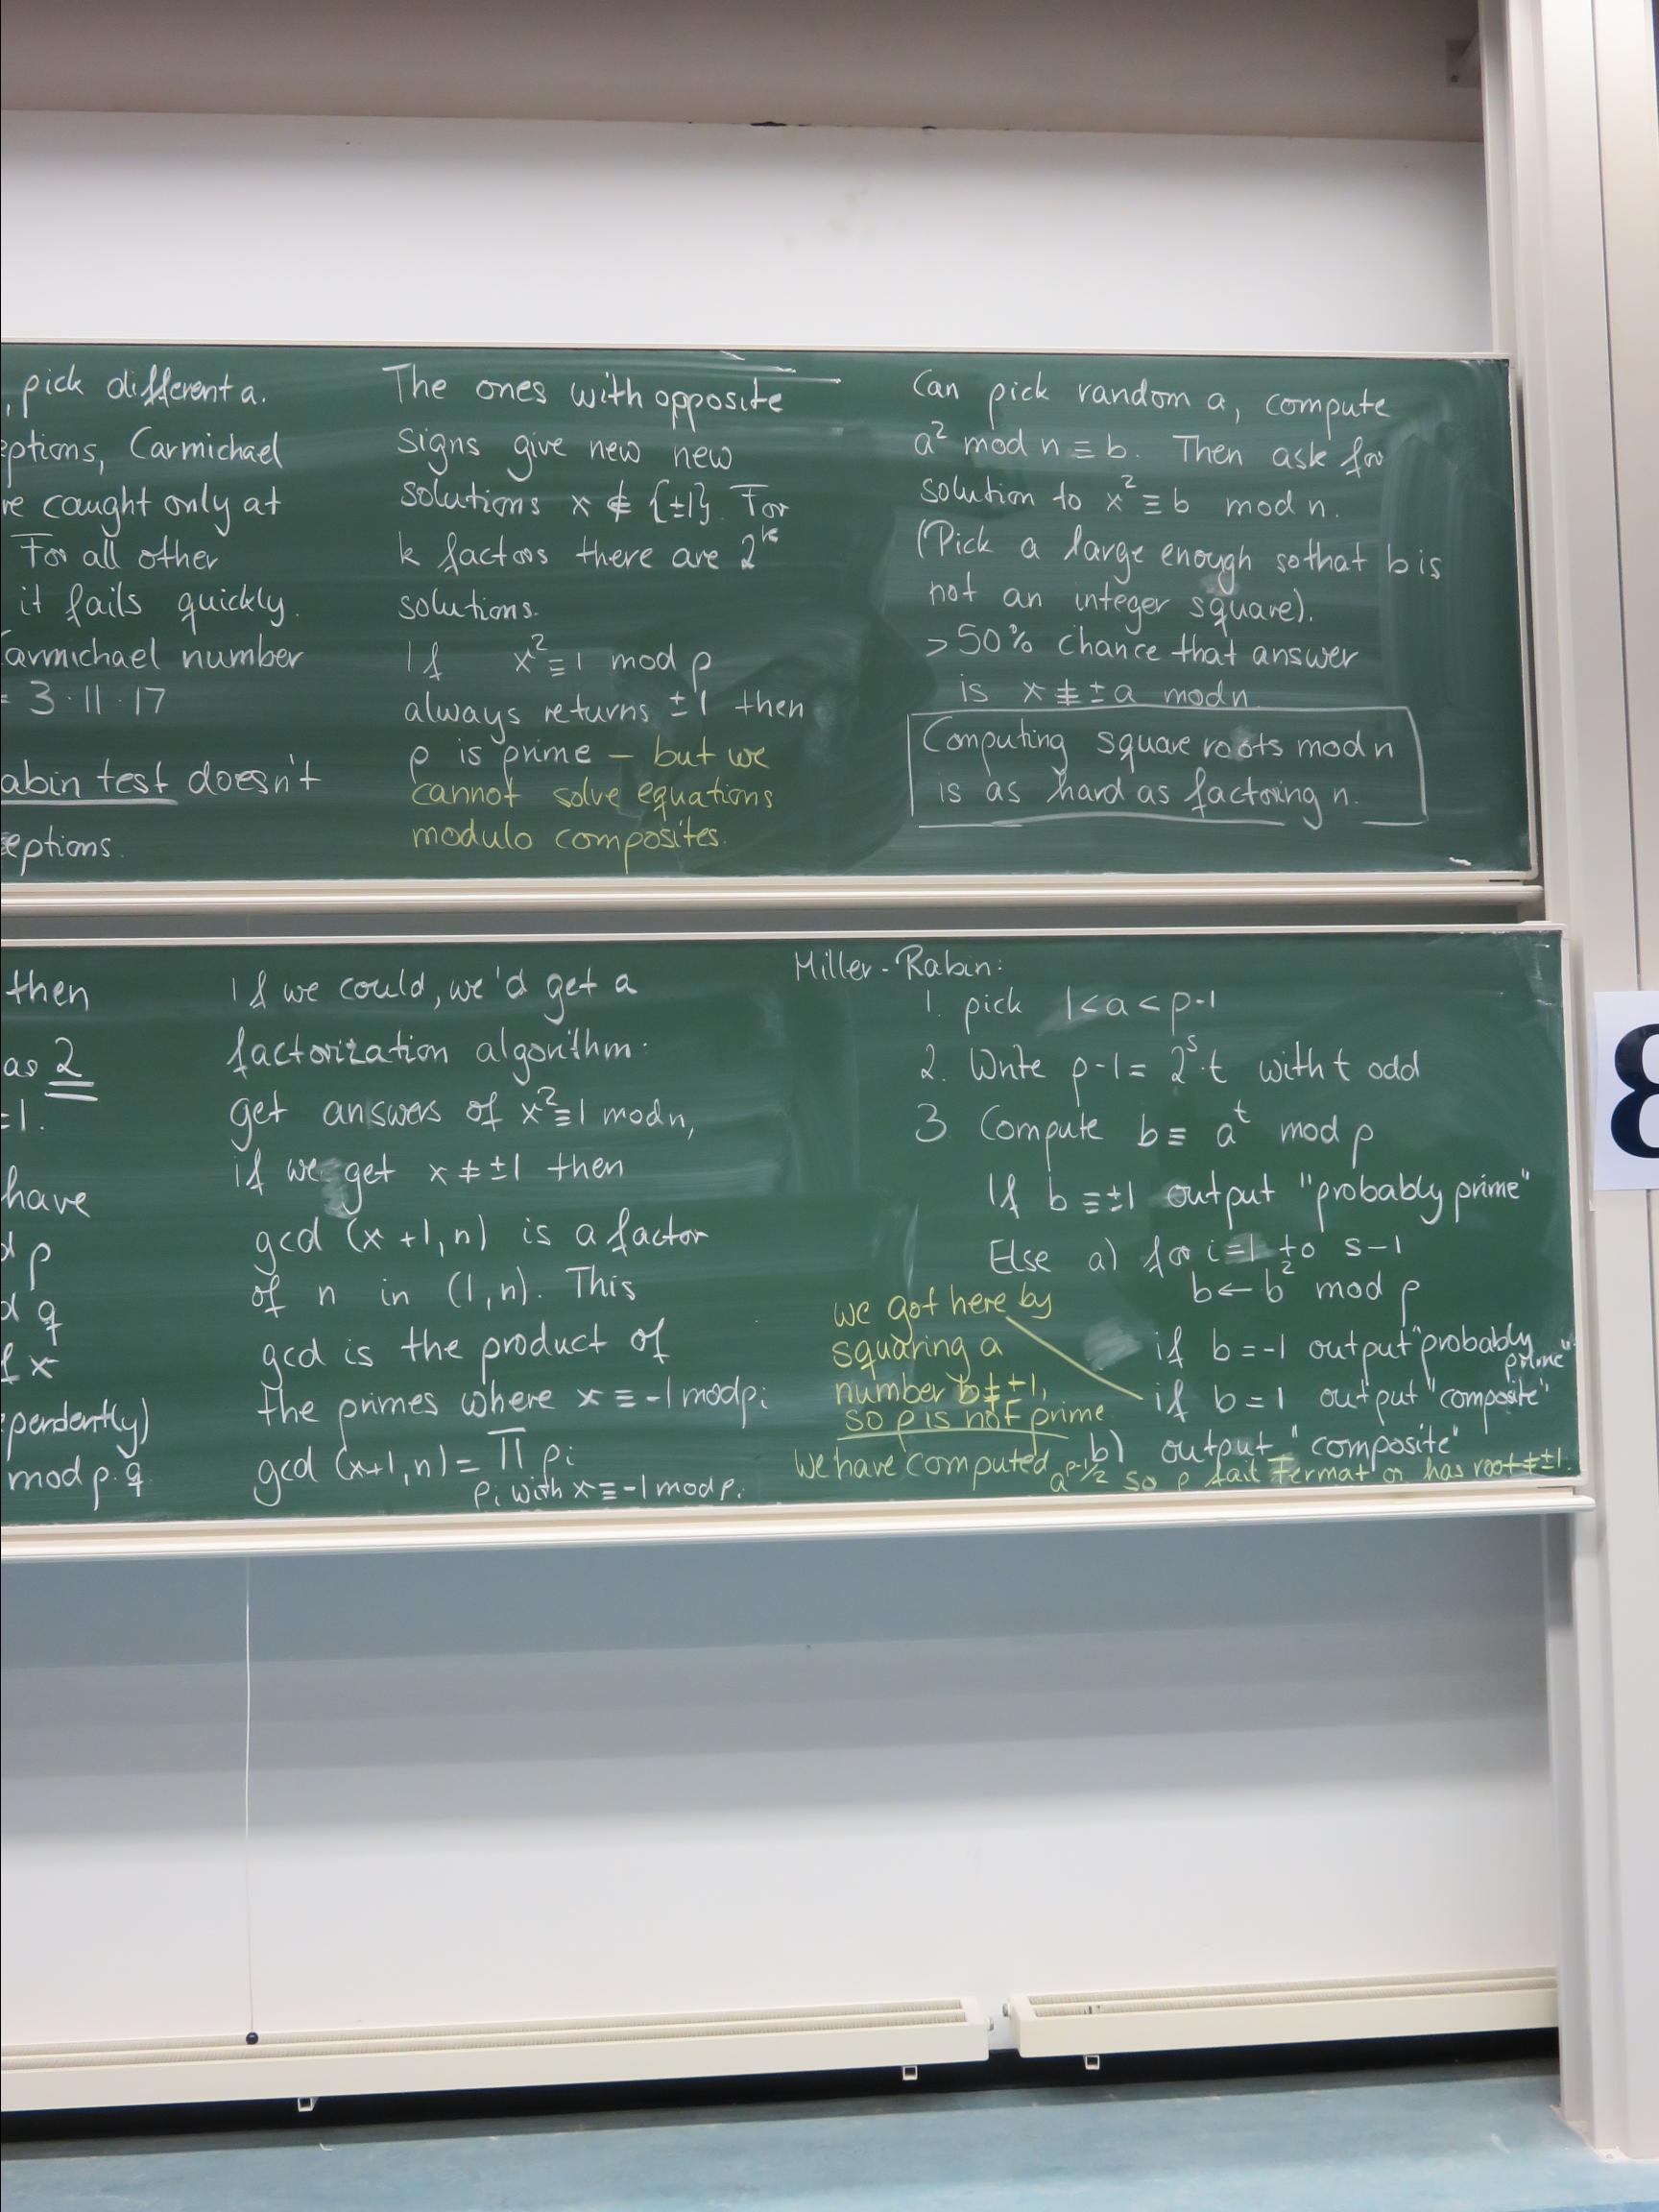 , pick different a.
eptions, Carmichael
re caught only at
For all other
it fails quickly.
armichael number
= 3·11·17
abin test doesn't
eptions.
The ones with opposite
signs give new new
solutions x ∉ {±1}. For
k factors there are 2^k
solutions.
If x² ≡ 1 mod p
always returns ±1 then
p is prime – but we
cannot solve equations
modulo composites.
Can pick random a, compute
a² mod n ≡ b. Then ask for
solution to x² ≡ b mod n.
(Pick a large enough so that b is
not an integer square).
>50% chance that answer
is x ≢ ±a mod n
Computing square roots mod n
is as hard as factoring n.
then
as 2
=1.
have
d p
d q
f x
pendently)
mod p·q
If we could, we'd get a
factorization algorithm:
get answers of x² ≡ 1 mod n,
if we get x ≠ ±1 then
gcd (x+1, n) is a factor
of n in (1,n). This
gcd is the product of
the primes where x ≡ -1 mod pi
gcd (x+1, n) = ∏ pi
pi with x ≡ -1 mod pi
Miller-Rabin:
1. pick 1<a<p-1
2. Write p-1 = 2^s·t with t odd
3 Compute b ≡ a^t mod p
If b ≡ ±1 output "probably prime"
Else a) for i=1 to s-1
b ← b² mod p
if b=-1 output "probably
prime"
if b=1 output "composite"
b) output "composite"
we got here by
squaring a
number b ≠ ±1,
so p is not prime
We have computed a^p-1/2 so p fail Fermat or has root ≠ ±1.
8